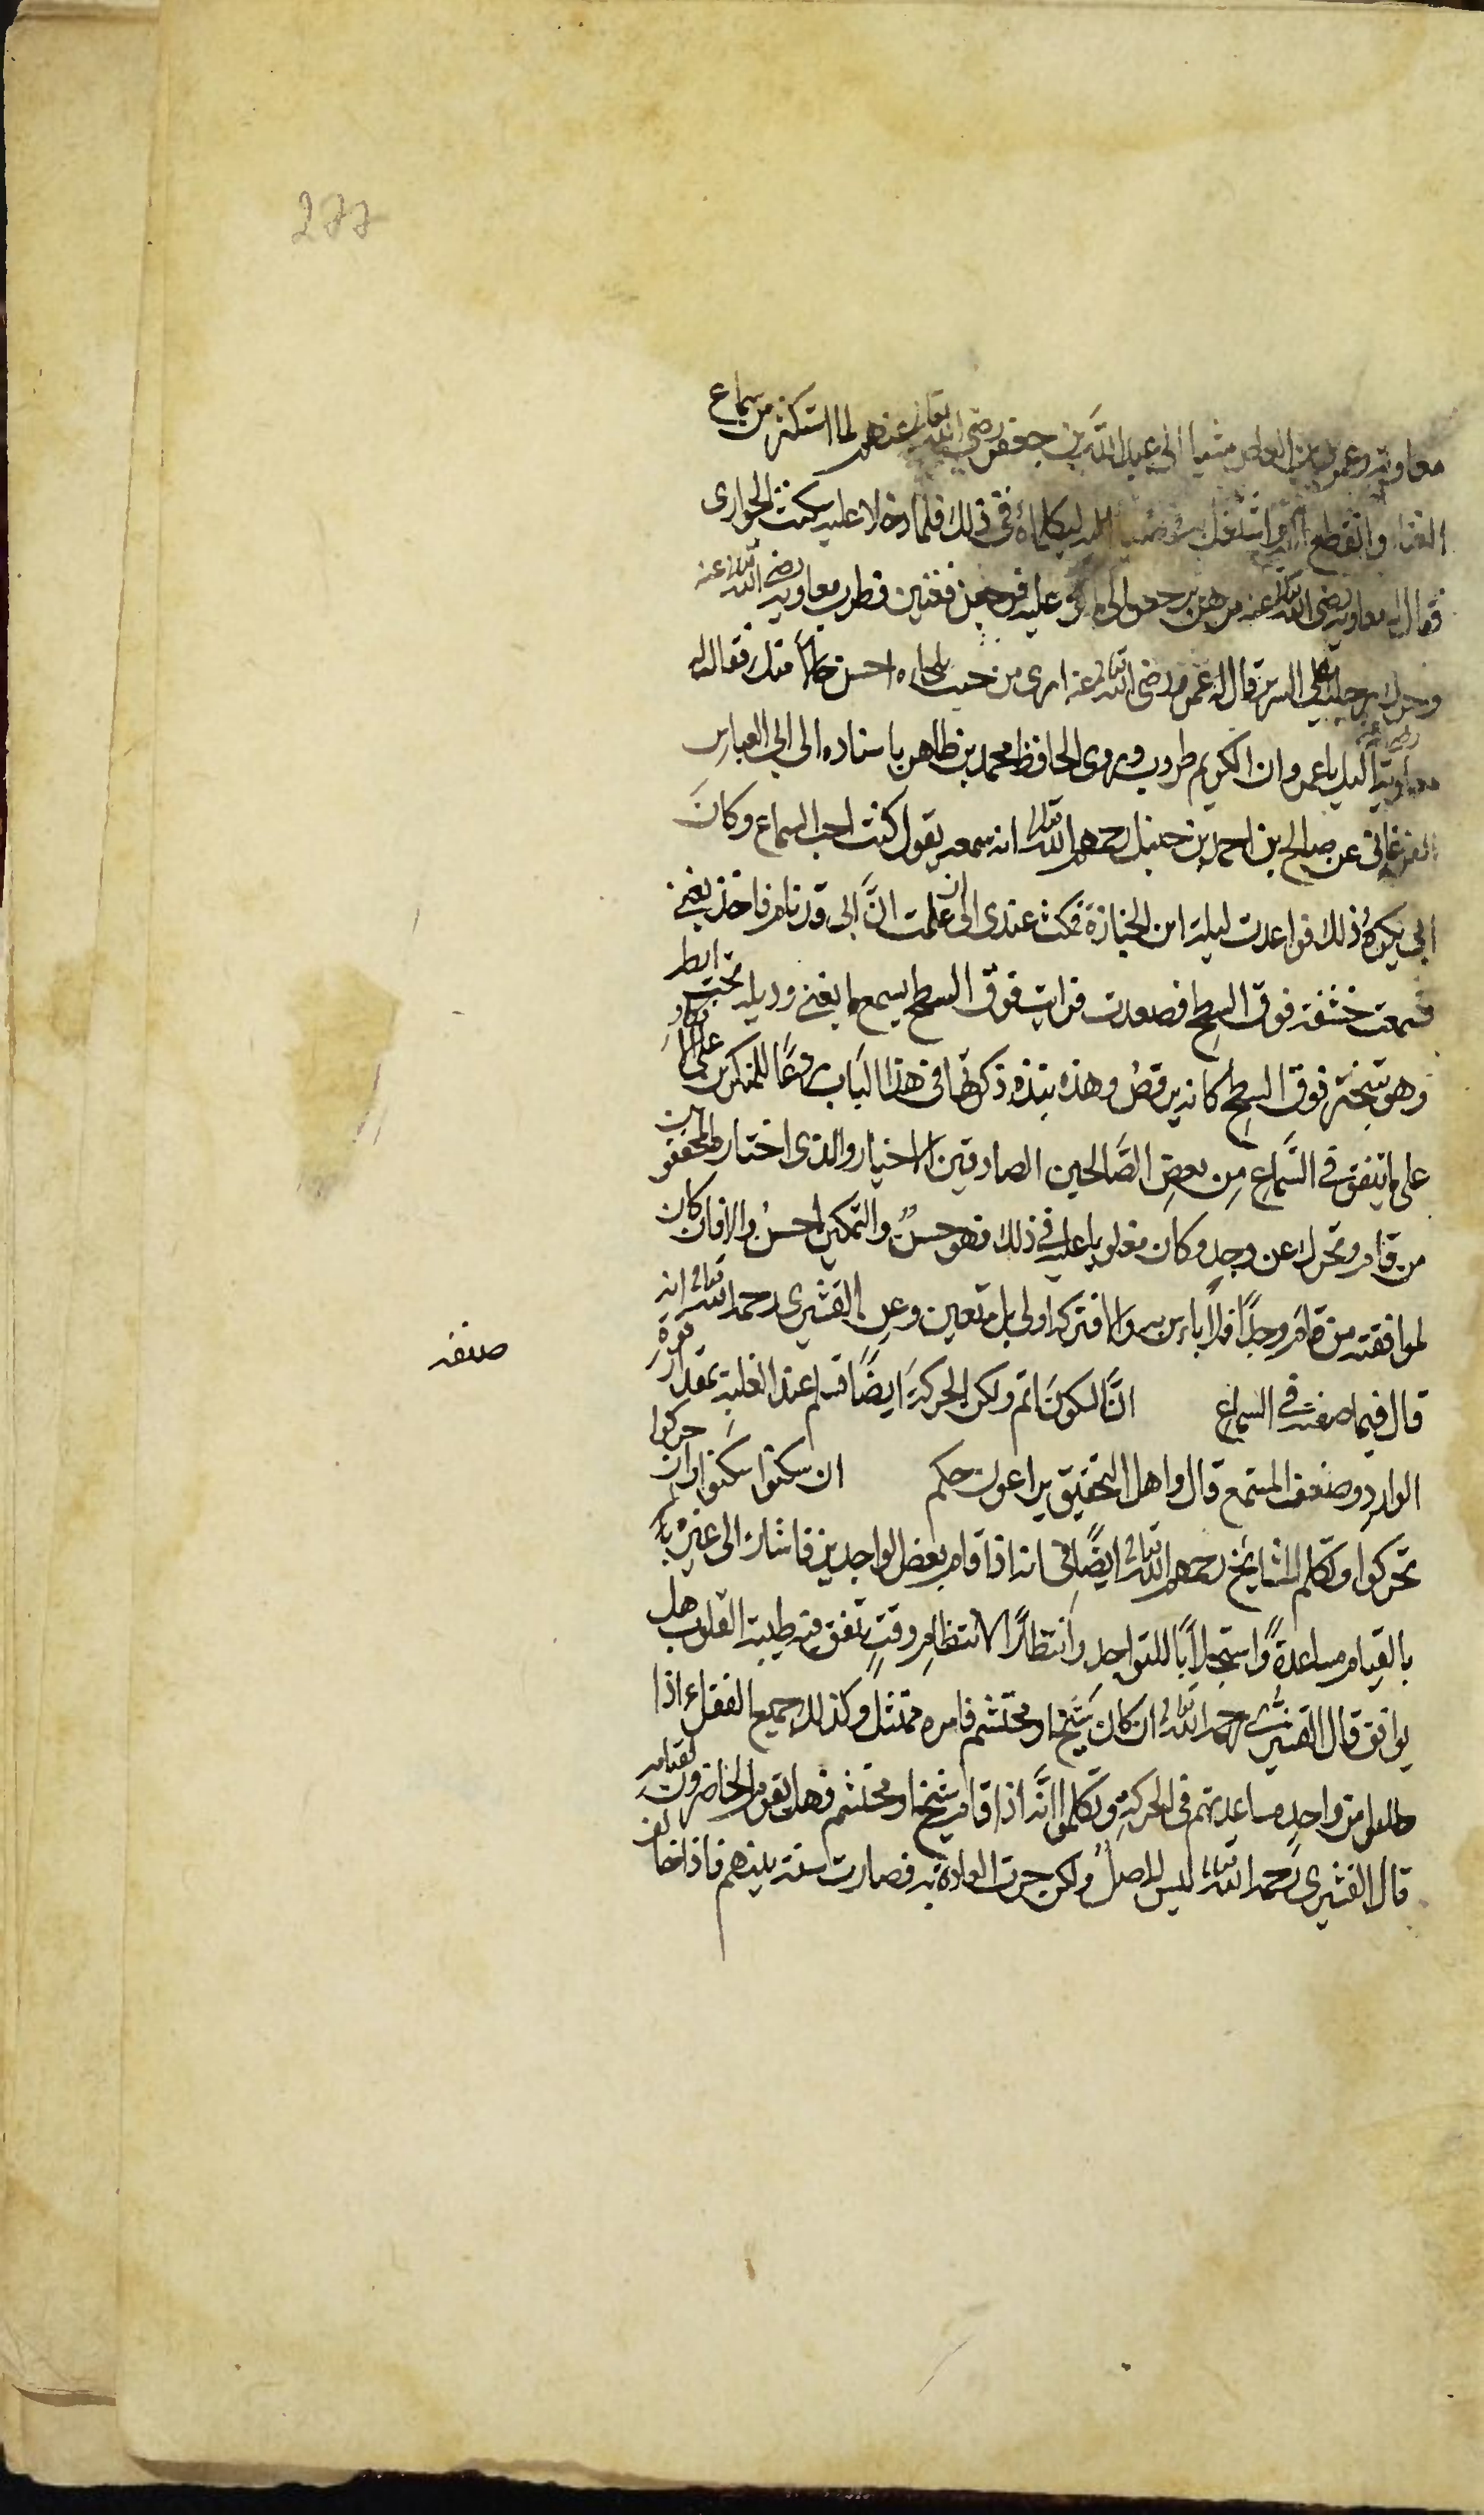 277
معاوية وعمرو بن العاص مشيا الى عبد الله بن جعفر رضي الله تعالى عنهم لما استكثر من سماع
الغناء وانقطع اليه واشتغل به فمضيا اليه ليكلماه في ذلك فلما دخلا عليه سكتت الجواري
فقال له معاوية رضي الله تعالى عنه مرهن يرجعن الى ما كن عليه فرجعن فغنين فطرب معاوية رضي الله تعالى عنه
وحرك رجليه على السرير قال له عمرو رضي الله تعالى عنه ان من جئت تلحاه احسن حالا منك فقال له
معاوية رضي الله عنه اليك يا عمرو ان الكريم طروب وروى الحافظ محمد بن طاهر باسناده الى ابي العباس
الفرغاني عن صالح بن احمد بن حنبل رحمهم الله تعالى انه سمعه يقول كنت احب السماع وكان
ابي يكره ذلك فواعدت ليلة ابن الخبازة فمكث عندي الى ان علمت ان ابي قد نام فاخذ يغني
فسمعت خشفة فوق السطح فصعدت فرايت فوق السطح يسمع ما يغني وذيله تحت ابطه
وهو يتبختر فوق السطح كانه يرقص وهذه نبذة ذكرتها في هذا الباب ردعا للمنكرين على الانكار
على ما يتفق في السماع من بعض الصالحين الصادقين الاخيار والذي اختاره المحققون
من قام وتحرك عن وجد وكان مغلوبا عليه في ذلك فهو حسن والتمكين احسن والا فان كان
لموافقته من قام وجدا فلا باس به والا فتركه اولى بل متعين وعن القشيري رحمه الله تعالى انه
قال فيما صنفه في السماع ان السكون اتم ولكن الحركة ايضا تسلم عند الغلبة بمقدار قوة
صنفه
الوارد وضعف المستمع قال واهل التحقيق يراعون حكم ان سكنوا سكنوا وان حركوا
تحركوا وتكلم المشايخ رحمهم الله تعالى ايضا في انه اذا قام بعض الواجدين فاشار الى غيره
بالقيام مساعدة واستجلابا للتواجد وانتظارا لانتظام وقت يتفق فيه طيبة القلوب هل
يوافق قال القشيري رحمه الله تعالى ان كان شيخا او محتشم فامره ممتثل وكذلك جميع الفقراء اذا
طلبوا من واحد مساعدتهم في الحركة وتكلموا انه اذا قام شيخ او محتشم فهل يقوم الحاضرون لقيامه
قال القشيري رحمه الله تعالى ليس له اصل ولكن جرت العادة به فصارت سنة بينهم فاذا خالف